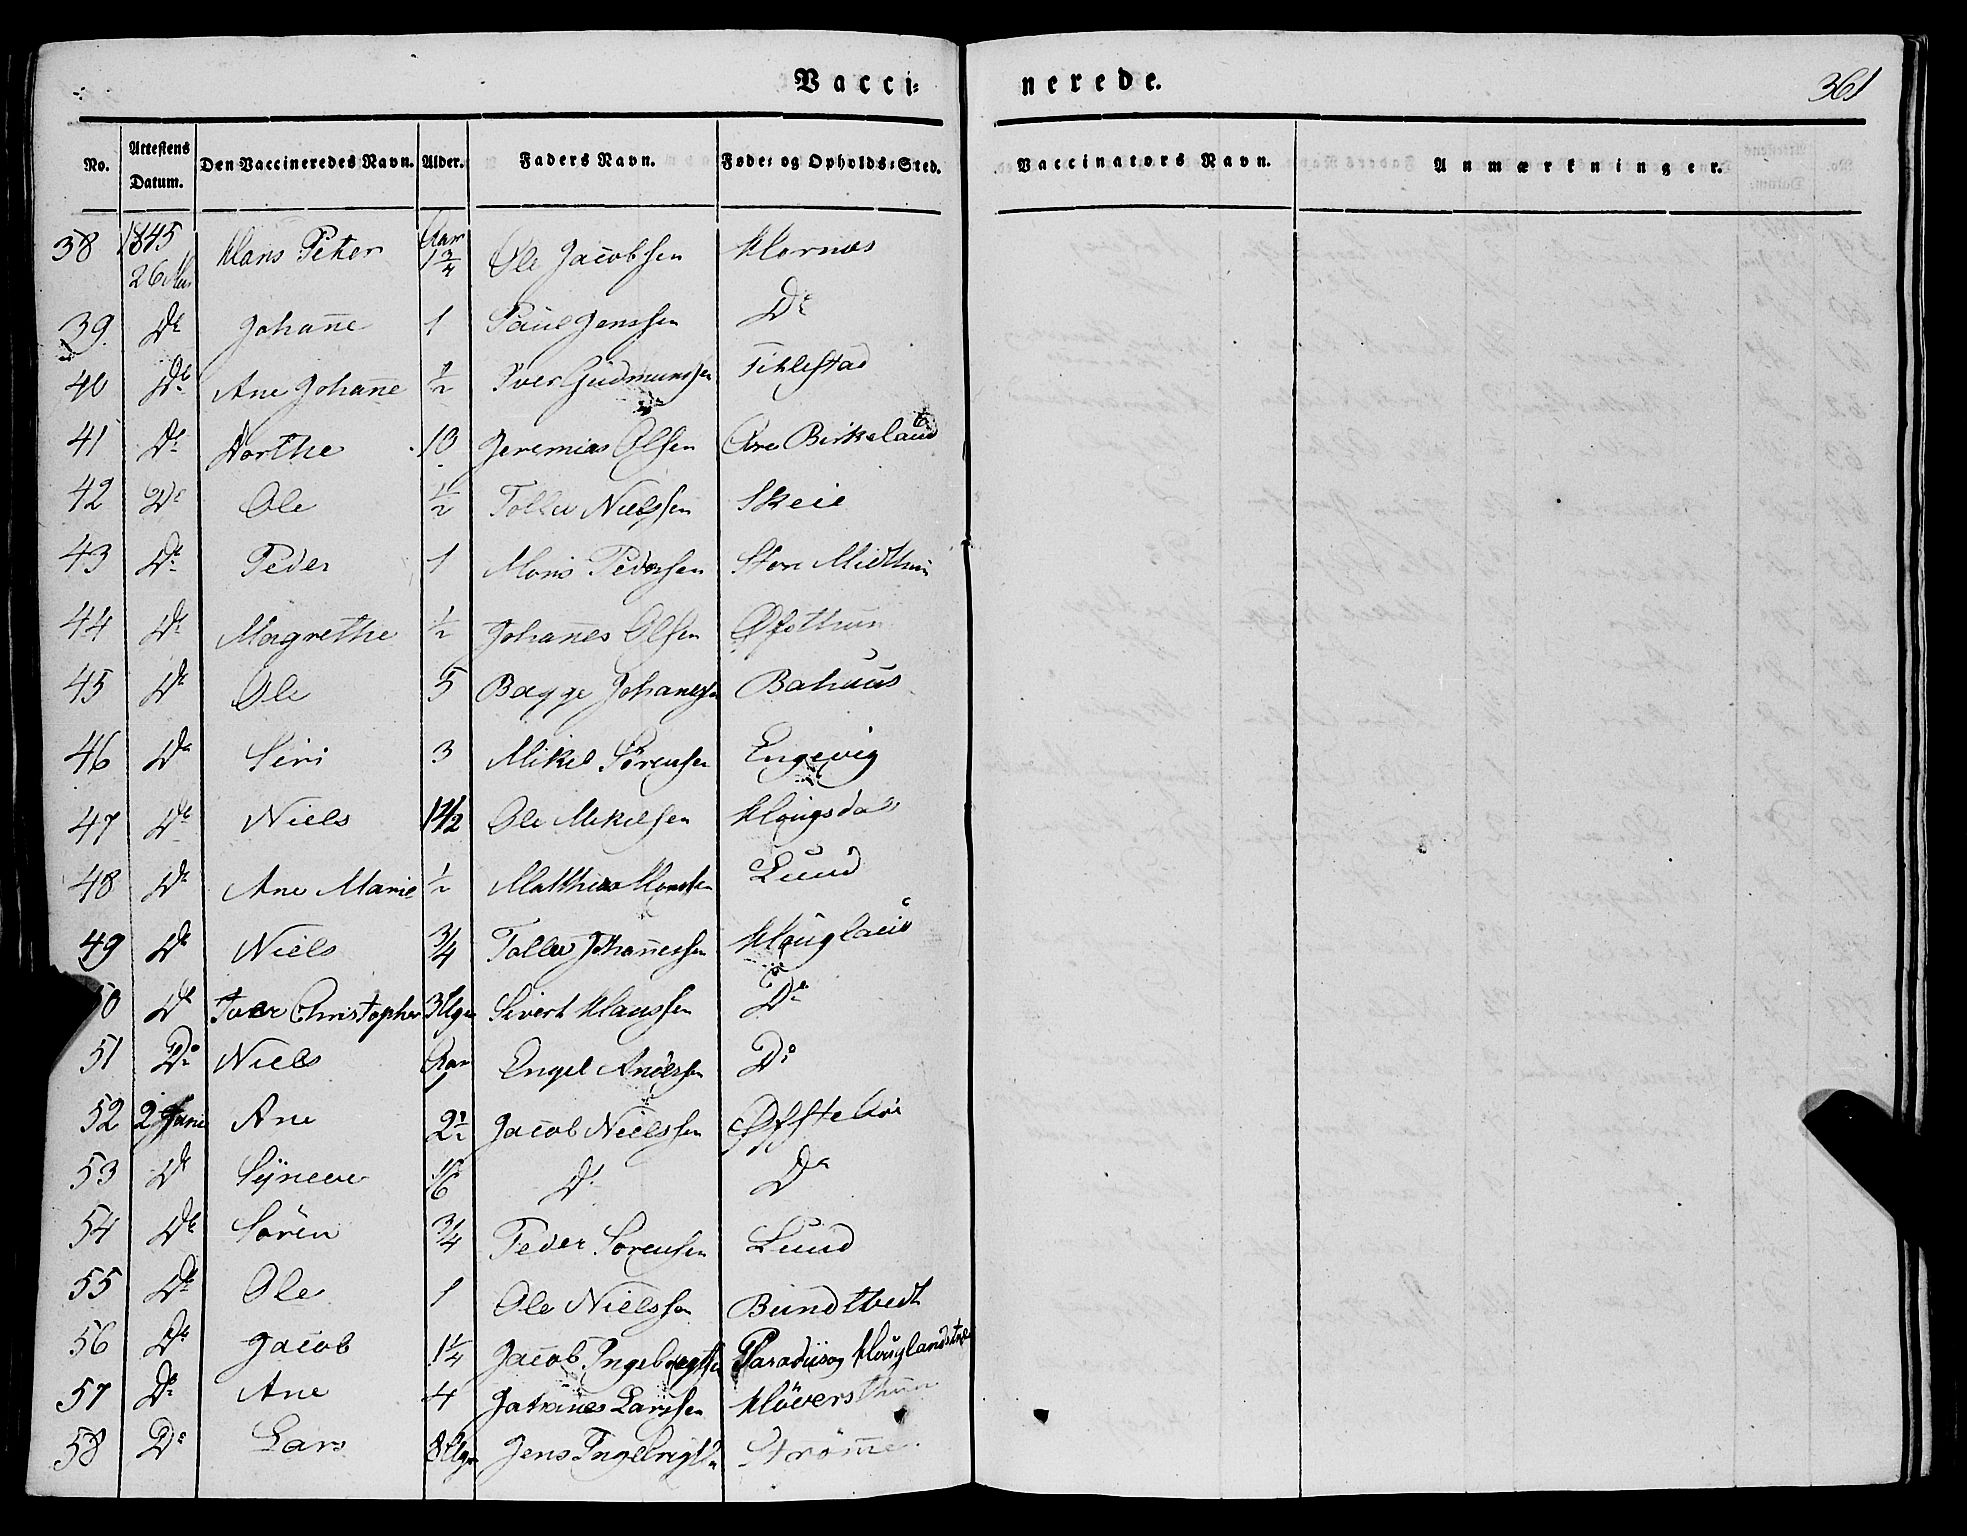 Vacci- nerede. 361
No. Attestens Datum. Den Vaccineredes Navn. Alder. Faders Navn. Føde- og Opholds-Sted. Vaccinators Navn. Anmærkninger.
38 1845 26 Mai Hans Peter Aar 1 3/4 Ole Jacobsen Hornæs
39. Do Johanne 1 Paul Jenssen Do
40 Do Ane Johanne 1/2 Iver Gudmunssen Tihlestad
41 Do Dorthe 10 Jeremias Olsen Birkeland
42 Do Ole 1/2 Tollev Nielssen Skeie
43 Do Peder 1 Mons Pedersen Store Midthun
44 Do Magrethe 1/2 Johannes Olsen
45 Do Ole 5 Bagge Johanesen Bahuus
46 Do Siri 3 Mikel Sørensen Engevig
47 Do Niels 1 1/2 Ole Mikelsen Hougsdal
48 Do Ane Marie 1/2 Mathias Monsen Lund
49 Do Niels 3/4 Tollev Johannessen Hougland
50 Do Iver Christopher 3 Uger Sivert Hanssen Do
51 Do Niels Aar 1 Engel Anderssen Do
52 2 Juni Ane 2 1/2 Jacob Nielssen
53 Do Synneve Do Do
54 Do Søren 3/4 Peder Sorensen Lund
55 Do Ole 1 Ole Nielssen Bundtvedt
56 Do Jacob 1 1/4 Jacob Ingebregtsen Paradiis og
57 Do Ane 4 Larssen Høversthun
58 Do Lars 8 Uger Jens Ingebrigts Strømme